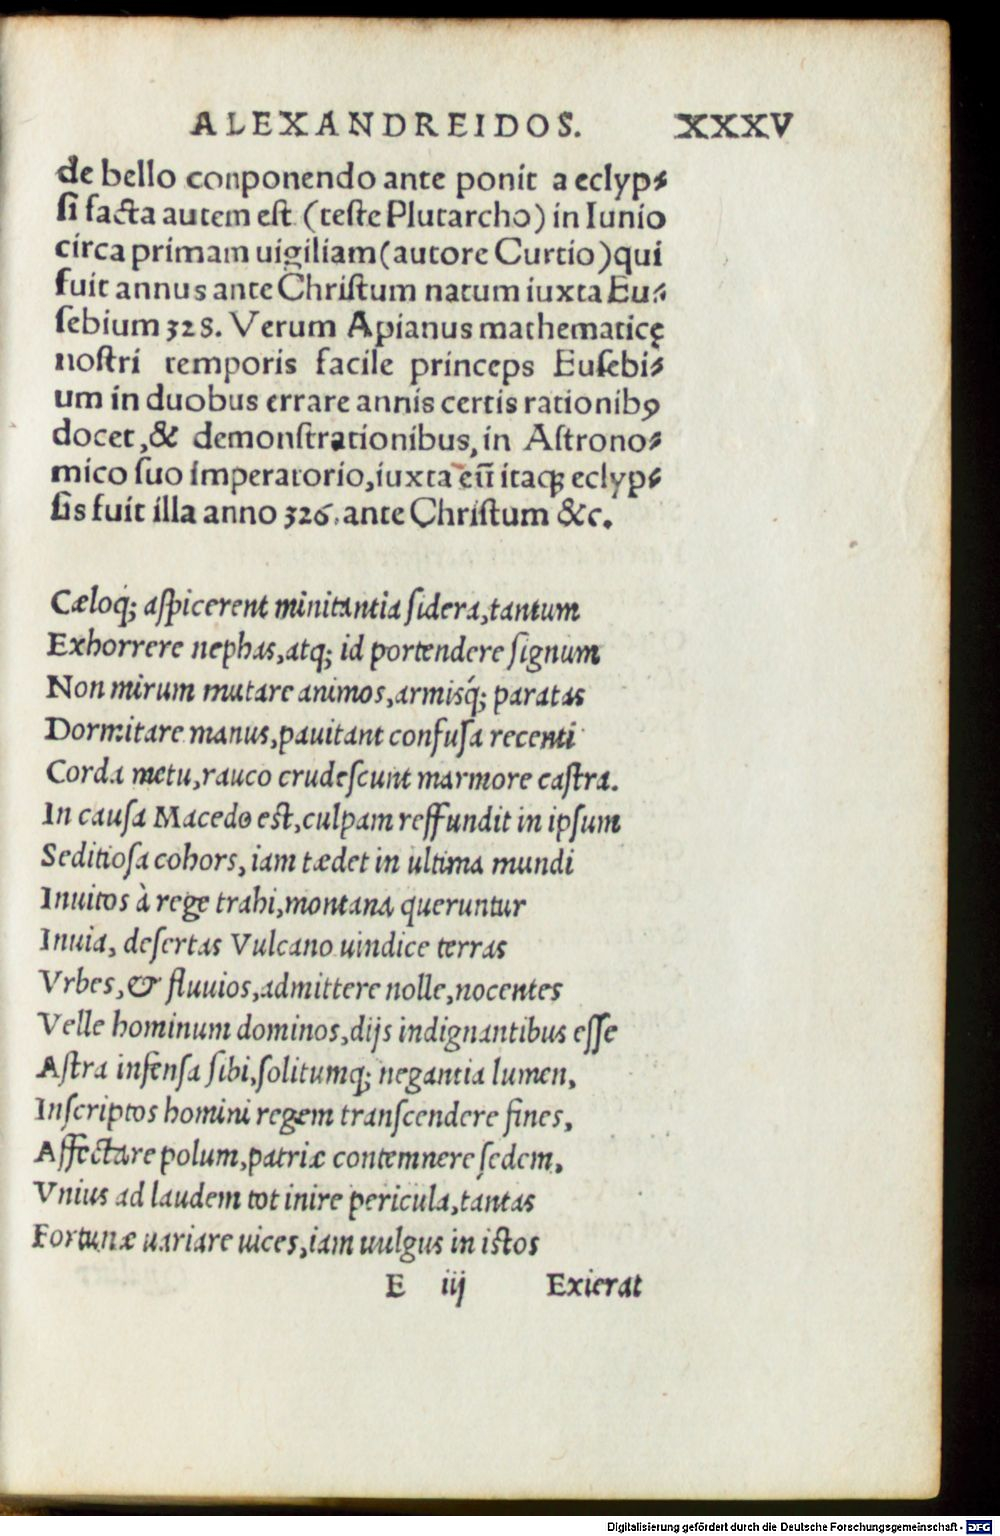 ALEXANDREIDOS. XXXV
de bello conponendo ante ponit a eclyp⸗
ſi facta autem eſt (teſte Plutarcho) in Iunio
circa primam uigiliam (autore Curtio) qui
fuit annus ante Chriſtum natum iuxta Eu⸗
ſebium 328. Verum Apianus mathematicę
noſtri temporis facile princeps Euſebi⸗
um in duobus errare annis certis rationibꝰ
docet, & demonſtrationibus, in Aſtrono⸗
mico ſuo imperatorio, iuxta eū itaq; eclyp⸗
ſis fuit illa anno 326. ante Chriſtum &c.
Cæloq́; aſpicerent minitantia ſidera, tantum
Exhorrere nephas, atq; id portendere ſignum
Non mirum mutare animos, armisq́; paratas
Dormitare manus, pauitant confuſa recenti
Corda metu, rauco crudeſcunt marmore caſtra.
In cauſa Macedo eſt, culpam reffundit in ipſum
Seditioſa cohors, iam tædet in ultima mundi
Inuitos à rege trahi, montana queruntur
Inuia, deſertas Vulcano uindice terras
Vrbes, & fluuios, admittere nolle, nocentes
Velle hominum dominos, dijs indignantibus eſſe
Aſtra infenſa ſibi, ſolitumq; negantia lumen,
Inſcriptos homini regem tranſcendere fines,
Affectare polum, patriæ contemnere ſedem,
Vnius ad laudem tot inire pericula, tantas
Fortunæ uariare uices, iam uulgus in iſtos
E iij Exierat
Digitalisierung gefördert durch die Deutsche Forschungsgemeinschaft - DFG